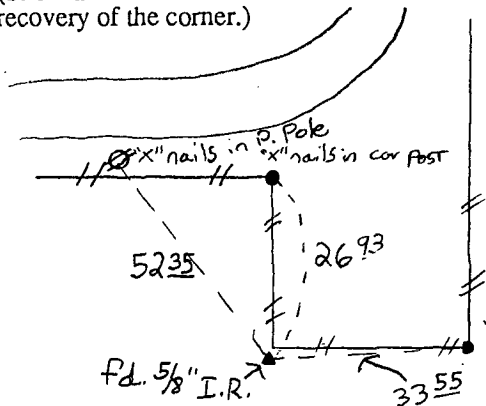 recovery of the corner.)
"x" nails in P. Pole
"x" nails in cor Post
52 35
26 93
fd. 5/8" I.R.
33 55